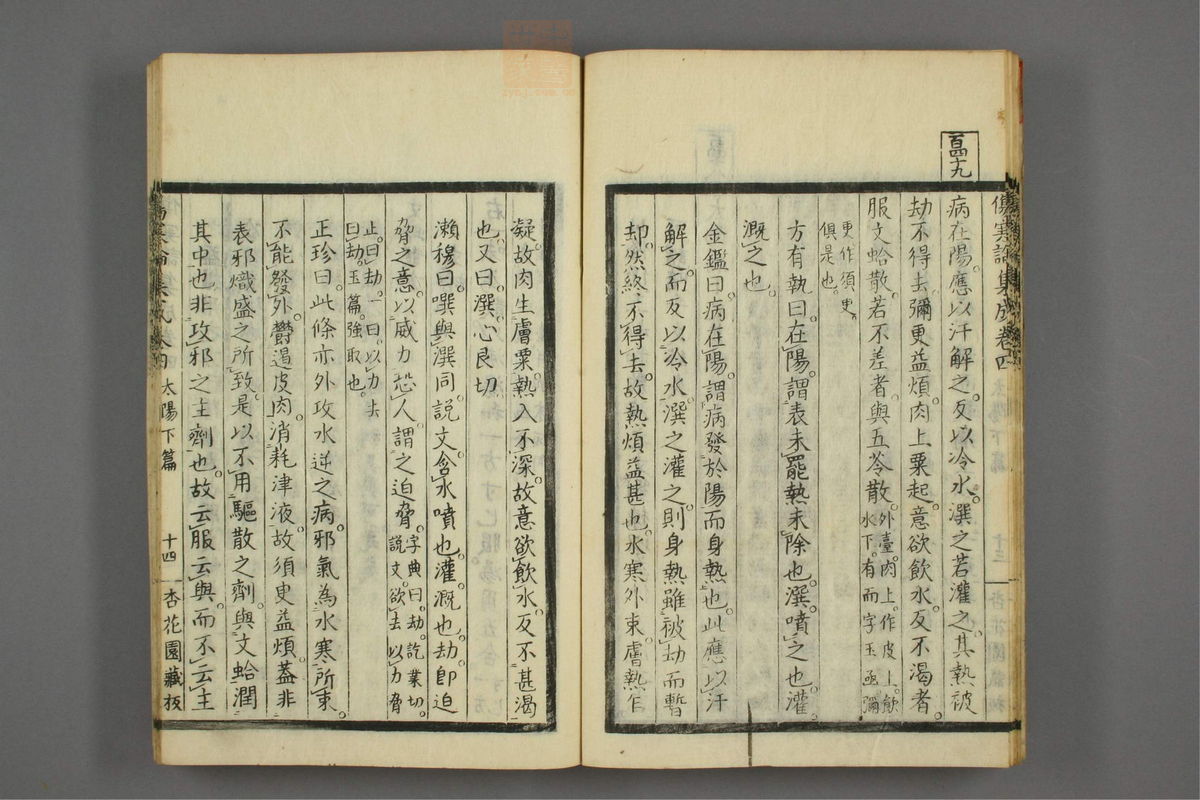 百四十九
傷寒論集成卷四
病在陽。應以汗解之。反以冷水。潠之若灌之。其熱被
劫不得去。彌更益煩。肉上粟起。意欲飲水。反不渴者。
服文蛤散。若不差者。與五苓散。外臺。肉上。作皮上。飲水下。有而字玉函彌
更作須更。俱是也。
方有執曰。在陽。謂表未罷熱未除也。潠。噴之也。灌。
溉之也。
金鑑曰。病在陽。謂病發於陽而身熱也。此應以汗
解之。而反以冷水潠之灌之。則身熱雖被劫而暫
却。然終不得去。故熱煩益甚也。水寒外束。膚熱乍
凝。故肉生膚粟。熱入不深。故意欲飲水。反不甚渴
也。又曰。潠。心艮切
瀨穆曰。噀與潠同。說文。含水噴也。灌。溉也。劫。卽迫
脅之意。以威力恐人。謂之迫脅。字典曰。劫。訖業切。說文。欲去以力脅
止。曰劫。一曰。以力去曰劫。玉篇。強取也。
正珍曰。此條亦外攻水逆之病。邪氣為水寒所束。
不能發外。鬱遏皮肉。消耗津液。故須更益煩。蓋非
表邪熾盛之所致。是以不用驅散之劑。與文蛤潤
其中也。非攻邪之主劑也。故云服云與。而不云主
太陽下篇
十四
杏花園藏板